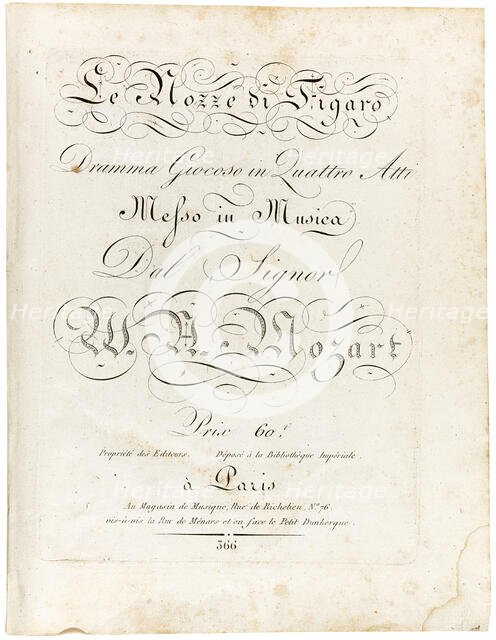 Le Nozze di Figaro
Dramma Giocoso in Quattro Atti
Meſso in Musica
Dal Signor
W. A. Mozart
Prix 60.f
Propriété des Editeurs. Déposé à la Bibliothèque Impériale.
à Paris
Au Magasin de Musique, Rue de Richelieu, N.º 76
vis-à-vis la Rue de Ménars et en face le Petit Dunkerque.
366